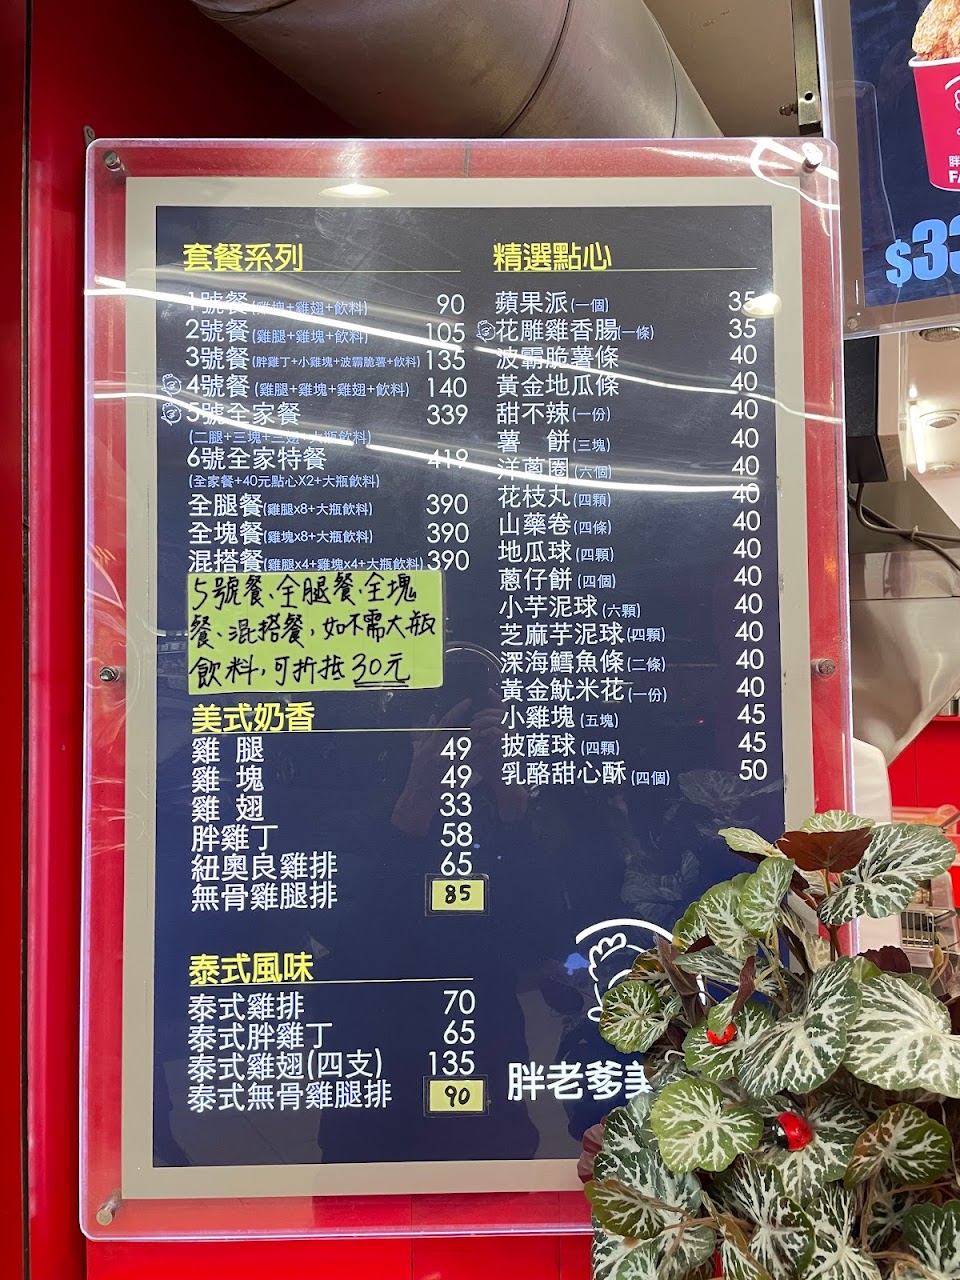 套餐系列
1號餐(雞塊+雞翅+飲料) 90
2號餐(雞腿+雞塊+飲料) 105
3號餐(胖雞丁+小雞塊+波霸脆薯+飲料) 135
4號餐(雞腿+雞塊+雞翅+飲料) 140
5號全家餐 339
(二腿+三塊+三翅+大瓶飲料)
6號全家特餐 419
(全家餐+40元點心X2+大瓶飲料)
全腿餐(雞腿x8+大瓶飲料) 390
全塊餐(雞塊x8+大瓶飲料) 390
混搭餐(雞腿x4+雞塊x4+大瓶飲料) 390
5號餐、全腿餐、全塊
餐、混搭餐,如不需大瓶
飲料,可折抵30元
美式奶香
雞 腿 49
雞 塊 49
雞 翅 33
胖雞丁 58
紐奧良雞排 65
無骨雞腿排 85
泰式風味
泰式雞排 70
泰式胖雞丁 65
泰式雞翅(四支) 135
泰式無骨雞腿排 90
精選點心
蘋果派(一個) 35
花雕雞香腸(一條) 35
波霸脆薯條 40
黃金地瓜條 40
甜不辣(一份) 40
薯 餅(三塊) 40
洋蔥圈(六個) 40
花枝丸(四顆) 40
山藥卷(四條) 40
地瓜球(四顆) 40
蔥仔餅(四個) 40
小芋泥球(六顆) 40
芝麻芋泥球(四顆) 40
深海鱈魚條(二條) 40
黃金魷米花(一份) 40
小雞塊(五塊) 45
披薩球(四顆) 45
乳酪甜心酥(四個) 50
胖老爹美
胖
FA
$33